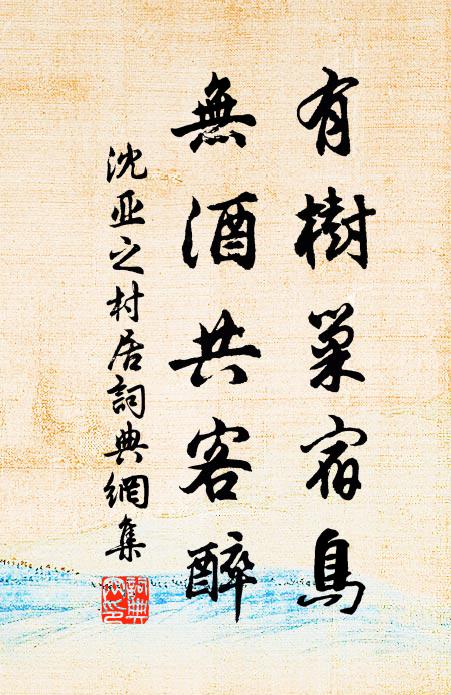 有樹巢宿鳥
無酒共客醉
沈亚之村居詞典網集